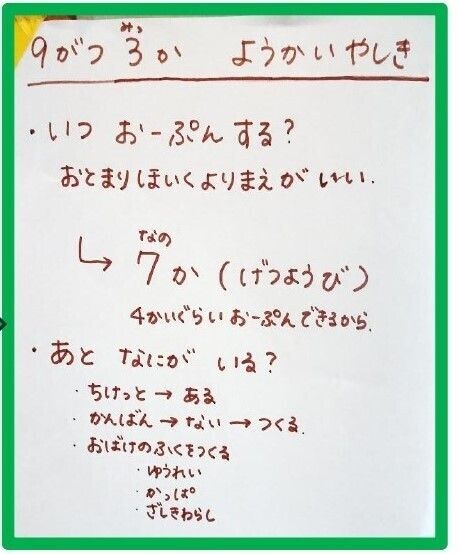 みっ
9がつ 3か ようかいやしき
・いつ おーぷんする?
おとまりほいくよりまえが いい.
なの
↳ 7か (げつようび)
4かいぐらい おーぷんできるから.
・あと なにが いる?
・ちけっと→ある
・かんばん→ない→つくる.
・おばけのふくをつくる
・ゆうれい
・かっぱ
・ざしきわらし